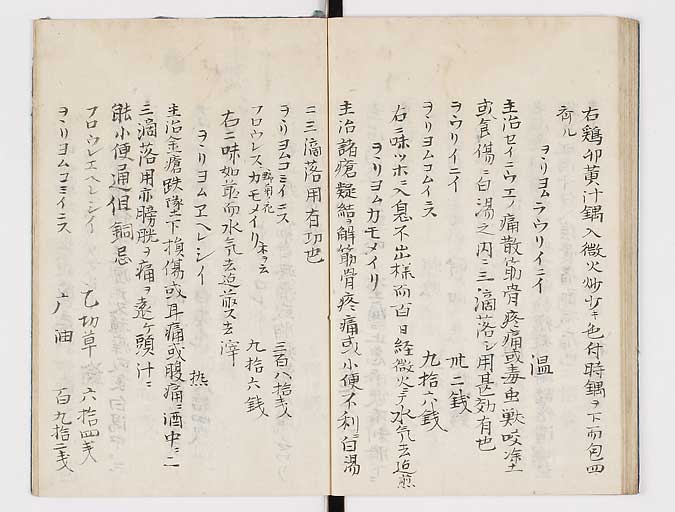 右鶏卵黄汁鍋入微火炒少キ色付時鍋ヲ下而包四
ヲヽリヨムラウリイニイ 温
主治セイウエノ痛散筋骨疼痛或毒虫獣咬
或食傷ニ白湯之内ニ三滴落シ用甚効有也
ヲウリイニイ 卅二銭
ヲヽリヨムコムイニス 九拾六銭
右二味ツホニ入息不出様而百日経微火ニテ水気去迄煎
ヲヽリヨムカモメイリ
主治諸瘡凝結ヲ解筋骨疼痛或ハ小便不利ニ白湯
ニ三滴落用有功也
ヲヽリヨムコミイニス 三百八拾
フロウレスカモメイリ 野菊ノ花 九拾六銭
右二味如前而水気去迄煎ス去滓
ヲヽリヨムヱヘレシイ 熱
主治金瘡跌墜下損傷或耳痛或腹痛ニ酒中ニ二
三滴落用亦膀胱ヲ痛ヲ頭汁ニ
能小便通但銅忌
フロウレエヘレシイ 乙切草 六拾四
ヲヽリヨムコミイニス 油 百九拾二